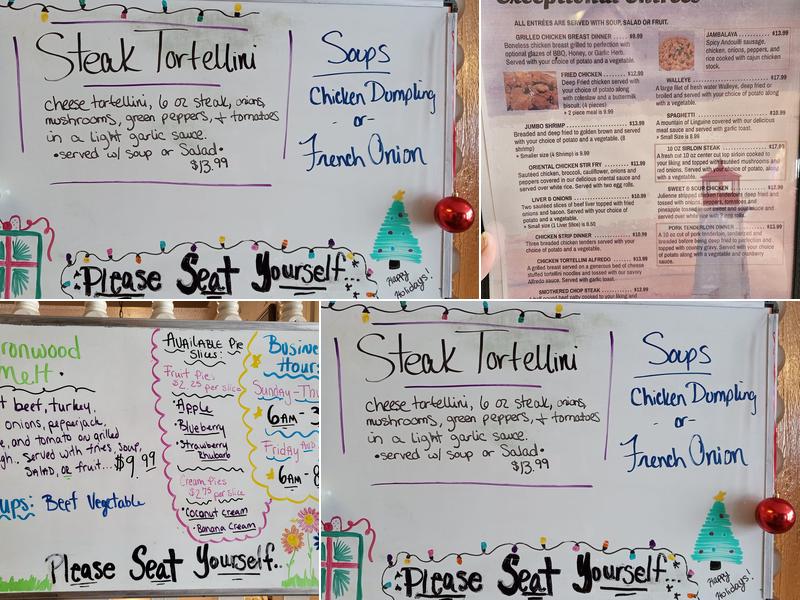 Steak Tortellini
cheese tortellini, 6 oz steak, onions,
mushrooms, green peppers, + tomatoes
in a light garlic sauce.
• served w/ soup or Salad •
$13.99
Soups
Chicken Dumpling
- or -
French Onion
Please Seat Yourself...
Happy
Holidays!
Exceptional Entrées
ALL ENTRÉES ARE SERVED WITH SOUP, SALAD OR FRUIT.
GRILLED CHICKEN BREAST DINNER $9.99
Boneless chicken breast grilled to perfection with
optional glazes of BBQ, Honey, or Garlic Herb.
Served with your choice of potato and a vegetable.
FRIED CHICKEN $12.99
Deep Fried chicken served with
your choice of potato along
with coleslaw and a buttermilk
biscuit. (4 pieces)
• 2 piece meal is 9.99
JUMBO SHRIMP $13.99
Breaded and deep fried to golden brown and served
with your choice of potato and a vegetable. (8
shrimp)
• Smaller size (4 Shrimp) is 9.99
ORIENTAL CHICKEN STIR FRY $11.99
Sautéed chicken, broccoli, cauliflower, onions and
peppers covered in our delicious oriental sauce and
served over white rice. Served with two egg rolls.
LIVER & ONIONS
Two sautéed slices of beef liver topped with fried
onions and bacon. Served with your choice of
potato and a vegetable.
• Small size (1 Liver Slice) is 8.50
CHICKEN STRIP DINNER $10.99
Three breaded chicken tenders served with your
choice of potato and a vegetable.
CHICKEN TORTELLINI ALFREDO $13.99
A grilled breast served on a generous bed of cheese
stuffed tortellini noodles and tossed with our savory
Alfredo sauce. Served with garlic toast.
SMOTHERED CHOP STEAK
JAMBALAYA $13.99
Spicy Andouilli sausage,
chicken, onions, peppers, and
rice cooked with cajun chicken
stock.
WALLEYE $17.99
A large filet of fresh water Walleye, deep fried or
broiled and served with your choice of potato along
with a vegetable.
SPAGHETTI $10.99
A mountain of Linguine covered with our delicious
meat sauce and served with garlic toast.
• Small Size is 8.99
10 OZ SIRLOIN STEAK $17.99
A fresh cut 10 oz center cut top sirloin cooked to
your liking and topped with sautéed mushrooms and
red onions. Served with your choice of potato along
with a vegetable.
SWEET & SOUR CHICKEN $12.99
Julienne stripped chicken deep fried and
tossed with onions, peppers, tomatoes and
pineapple tossed in our sweet and sour sauce and
served over white rice with 2 egg rolls.
PORK TENDERLOIN DINNER $13.99
A 10 oz cut of pork tenderloin, tenderized and
breaded before being deep fried to perfection and
topped with country gravy. Served with your choice
of potato along with a vegetable and cranberry
sauce.
ronwood
melt •
t beef, turkey,
onions, pepperjack,
e, and tomato on grilled
gh.. served with fries, soup,
SALAD, or fruit... $9.99
ups: Beef Vegetable
AVAILABLE Pie
Slices:
Fruit Pies
$2.25 per slice
• Apple
• Blueberry
• Strawberry
Rhubarb
Cream Pies
$2.75 per slice
• Coconut Cream
• Banana Cream
Busine
Hour
Sunday-Thu
6AM - 3
Friday
6AM - 8
Please Seat Yourself..
Steak Tortellini
cheese tortellini, 6 oz steak, onions,
mushrooms, green peppers, + tomatoes
in a light garlic sauce.
• served w/ soup or Salad •
$13.99
Soups
Chicken Dumpling
- or -
French Onion
Please Seat Yourself...
Happy
Holidays!